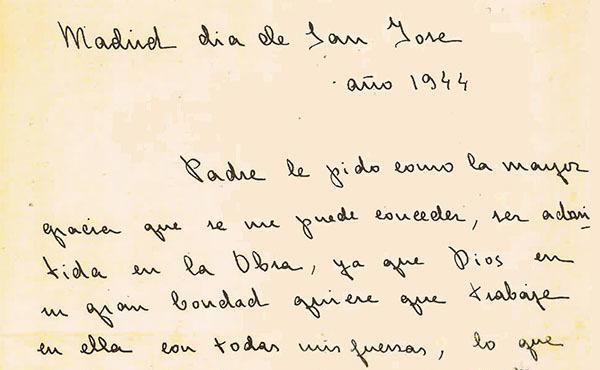 Madrid dia de San Jose
año 1944
Padre le pido como la mayor
gracia que se me puede conceder, ser admi
tida en la Obra, ya que Dios en
su gran bondad quiere que trabaje
en ella con todas mis fuerzas, lo que